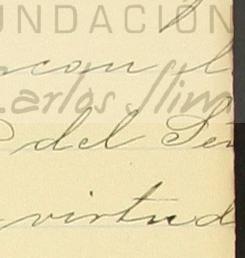 FUNDACIÓN
con l
Carlos Slim
del Señ
virtud